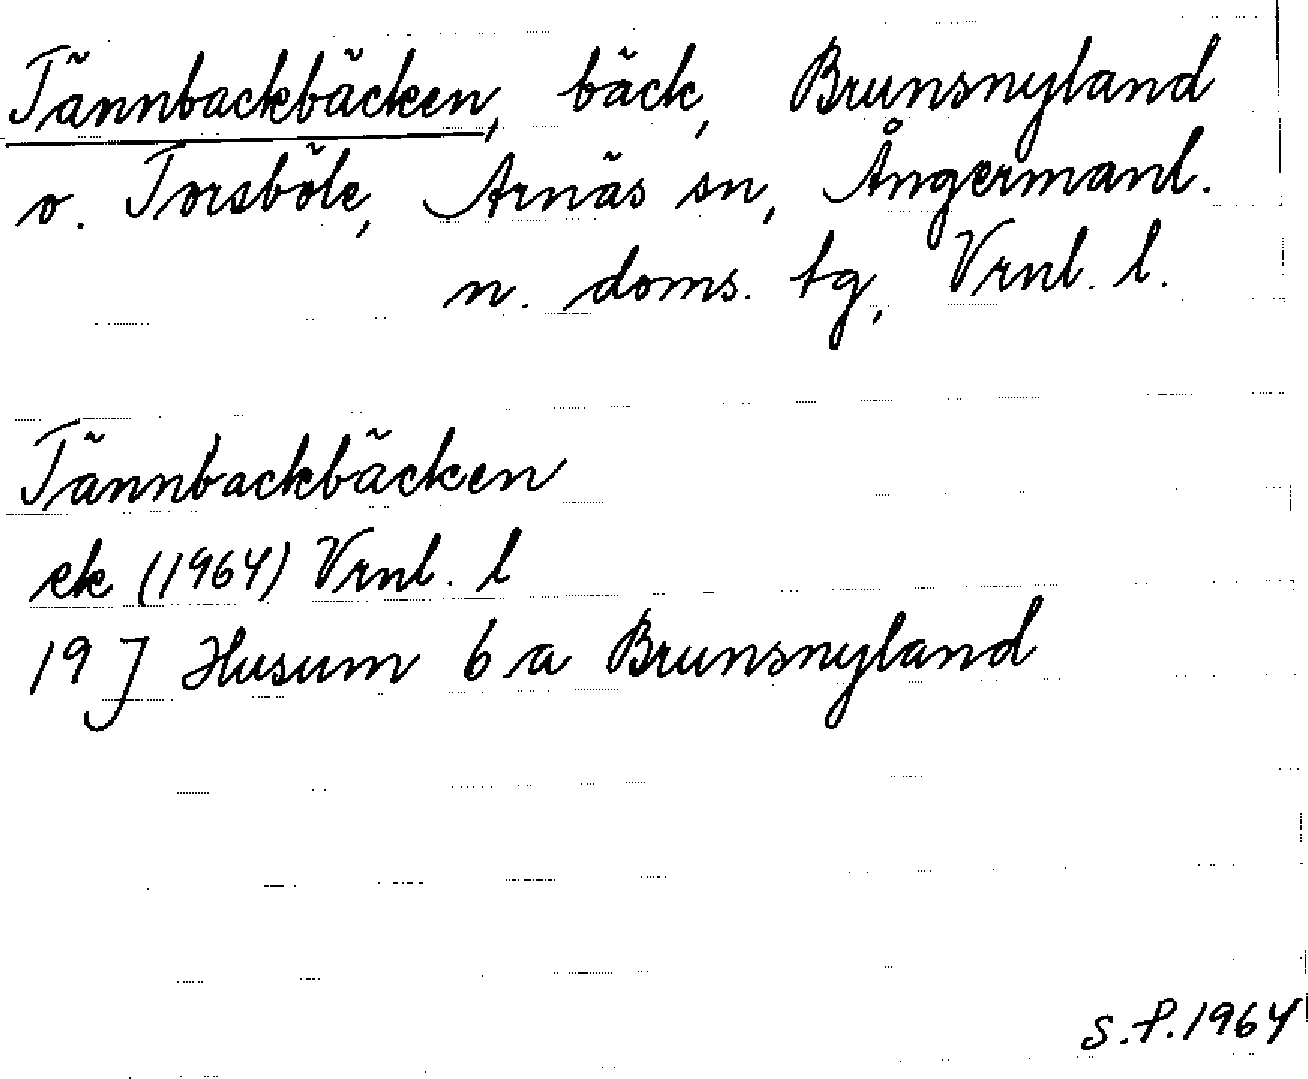 Tännbackbäcken, bäck, Brunsnyland
o. Torsböle, Arnäs sn, Ångermanl.
n. doms. tg, Vrnl. l.
Tännbackbäcken
ek (1964) Vrnl. l
19 J Husum 6 a Brunsnyland
S.P. 1964